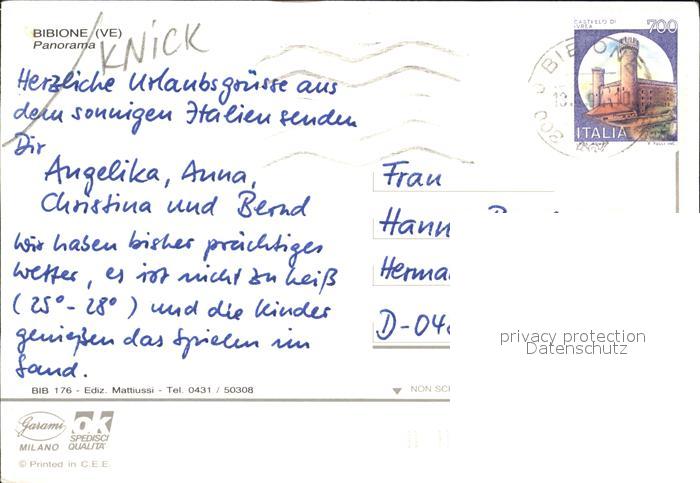 BIBIONE (VE)
Panorama
KNICK
Herzliche Urlaubsgrüsse aus
dem sonnigen Italien senden
Dir
Angelika, Anna,
Christina und Bernd
Wir haben bisher prächtiges
Wetter, es ist nicht zu heiß
(25° - 28°) und die Kinder
genießen das Spielen im
Sand.
BIB 176 - Ediz. Mattiussi - Tel. 0431 / 50308
Garami
MILANO
ok
SPEDISCI
QUALITA'
© Printed in C.E.E.
CASTELLO DI
IVREA
700
ITALIA
BIBIONE
Frau
Hann
Herma
D-04
NON SC
privacy protection
Datenschutz